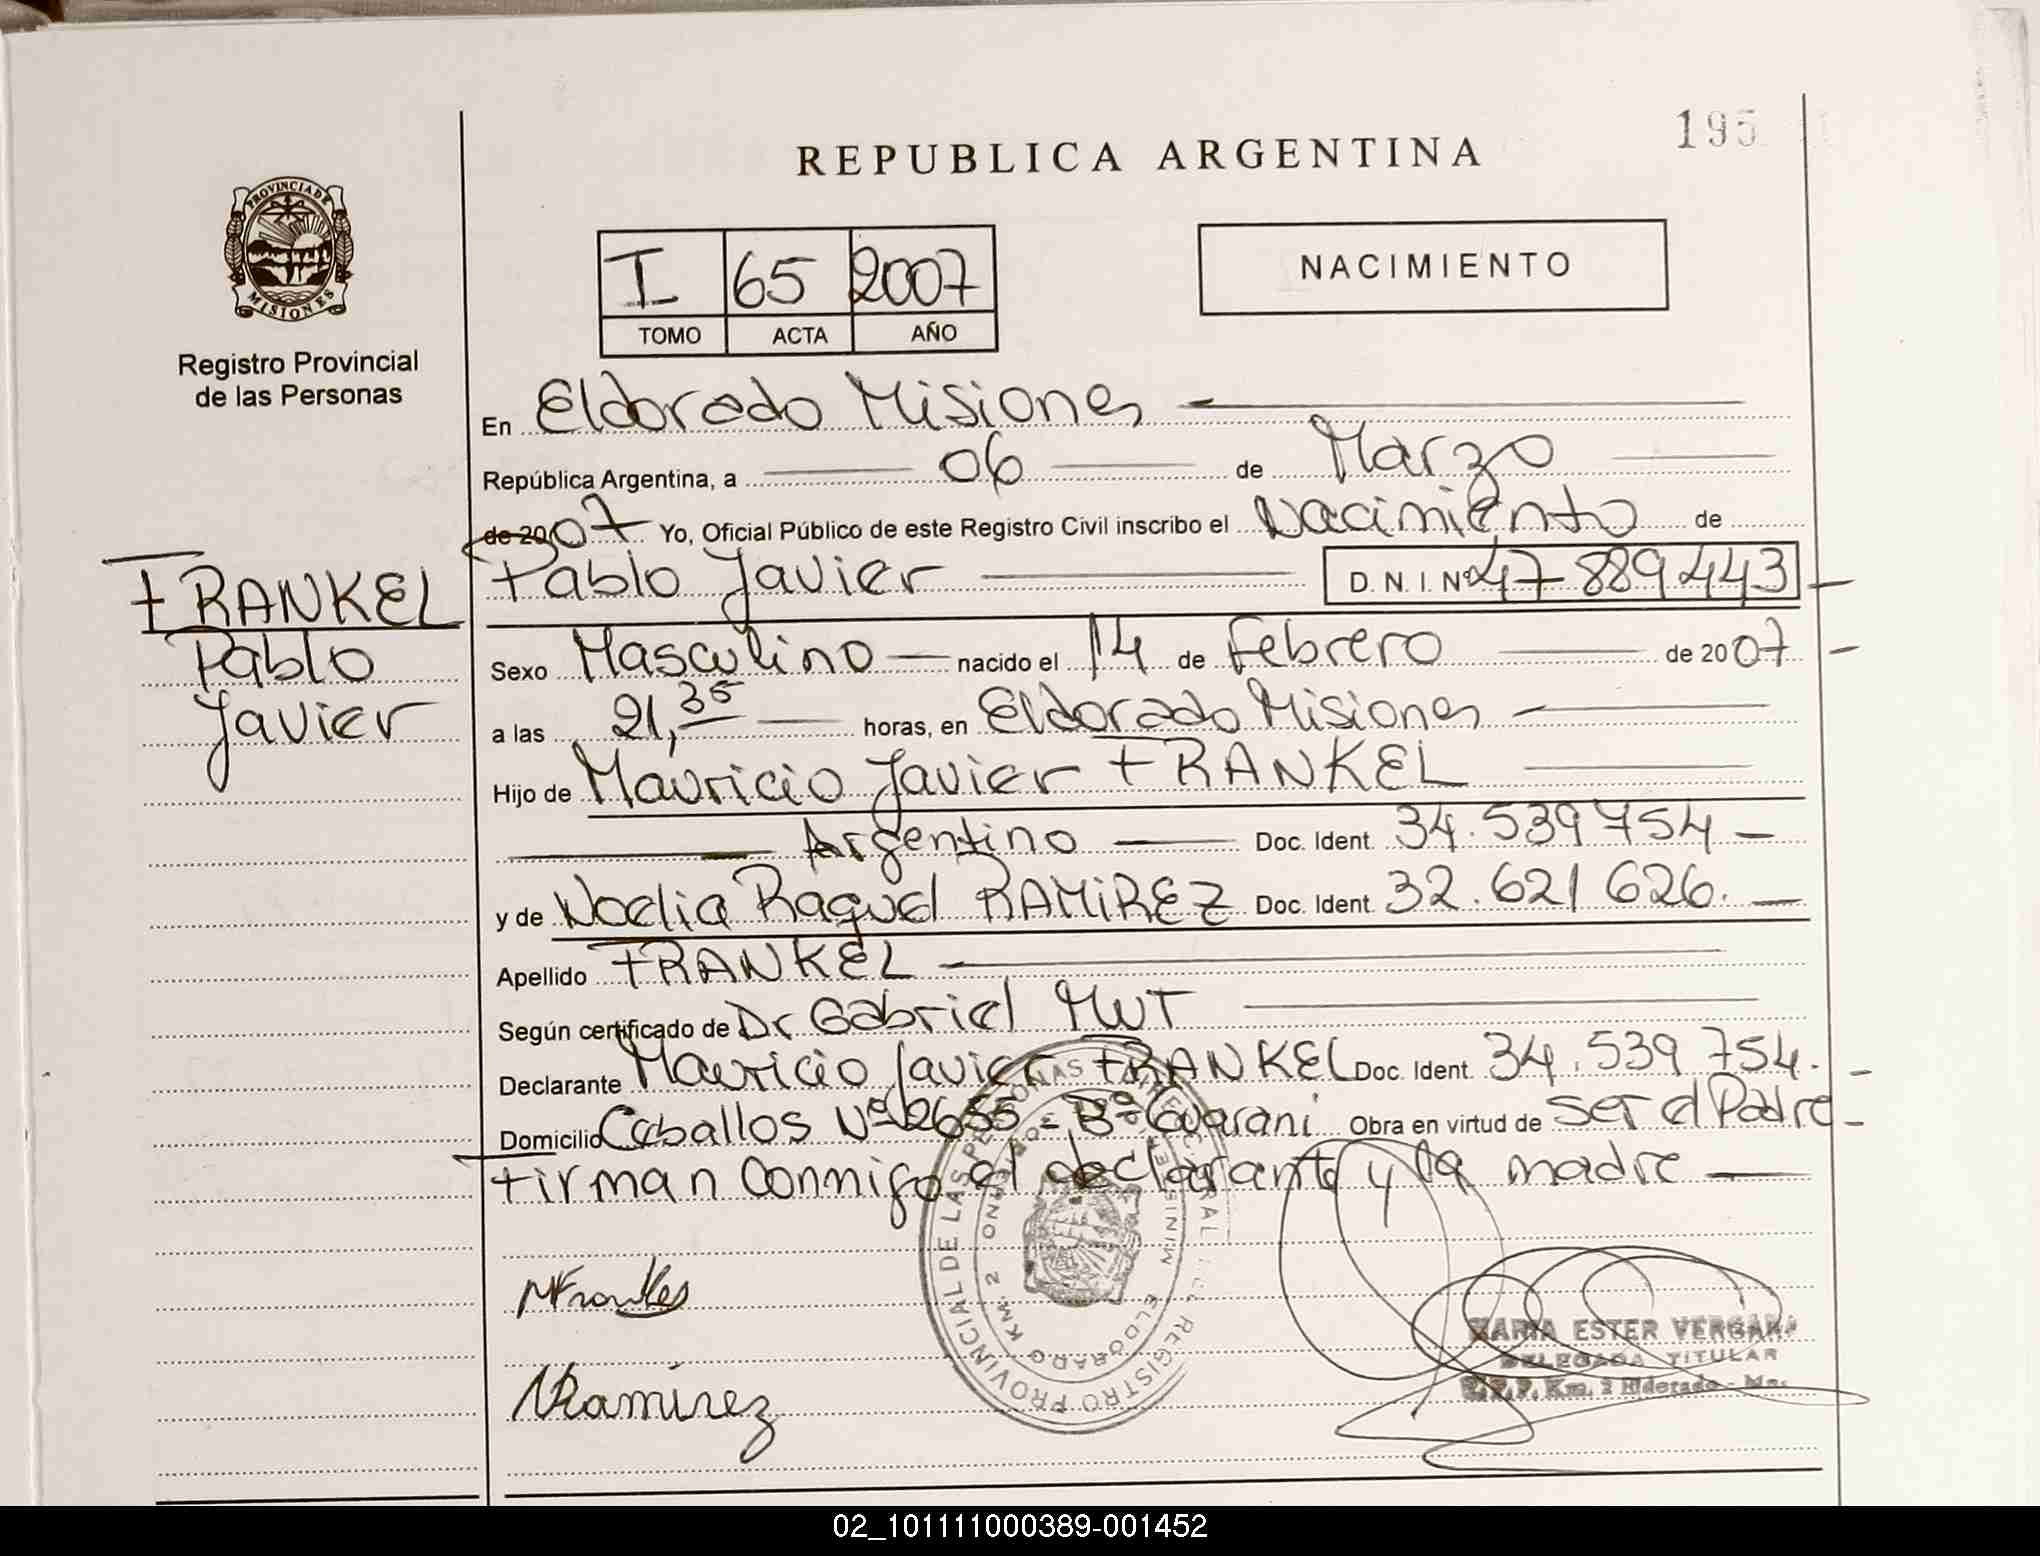 195
REPUBLICA ARGENTINA
PROVINCIA DE MISIONES
I 65 2007
TOMO ACTA AÑO
NACIMIENTO
Registro Provincial
de las Personas
En Eldorado Misiones
República Argentina, a 06 de Marzo
de 2007 Yo, Oficial Público de este Registro Civil inscribo el Nacimiento de
FRANKEL
Pablo
Javier
Pablo Javier D.N.I. Nº 47 889 443
Sexo Masculino nacido el 14 de Febrero de 2007
a las 21,35 horas, en Eldorado Misiones
Hijo de Mauricio Javier FRANKEL
Argentino Doc. Ident. 34.539 754
y de Noelia Raquel RAMIREZ Doc. Ident. 32.621 626.
Apellido FRANKEL
Según certificado de Dr Gabriel
Declarante Mauricio Javier FRANKEL Doc. Ident. 34.539 754.
Domicilio Caballos Nº 2655 = Bº Guarani Obra en virtud de ser el Padre
Firman conmigo el declarante y la madre
MFrankel
NRamirez
MARIA ESTER VERGARA
DELEGADA TITULAR
R.P.P. Km. 2 Eldorado - Mnes.
02_101111000389-001452